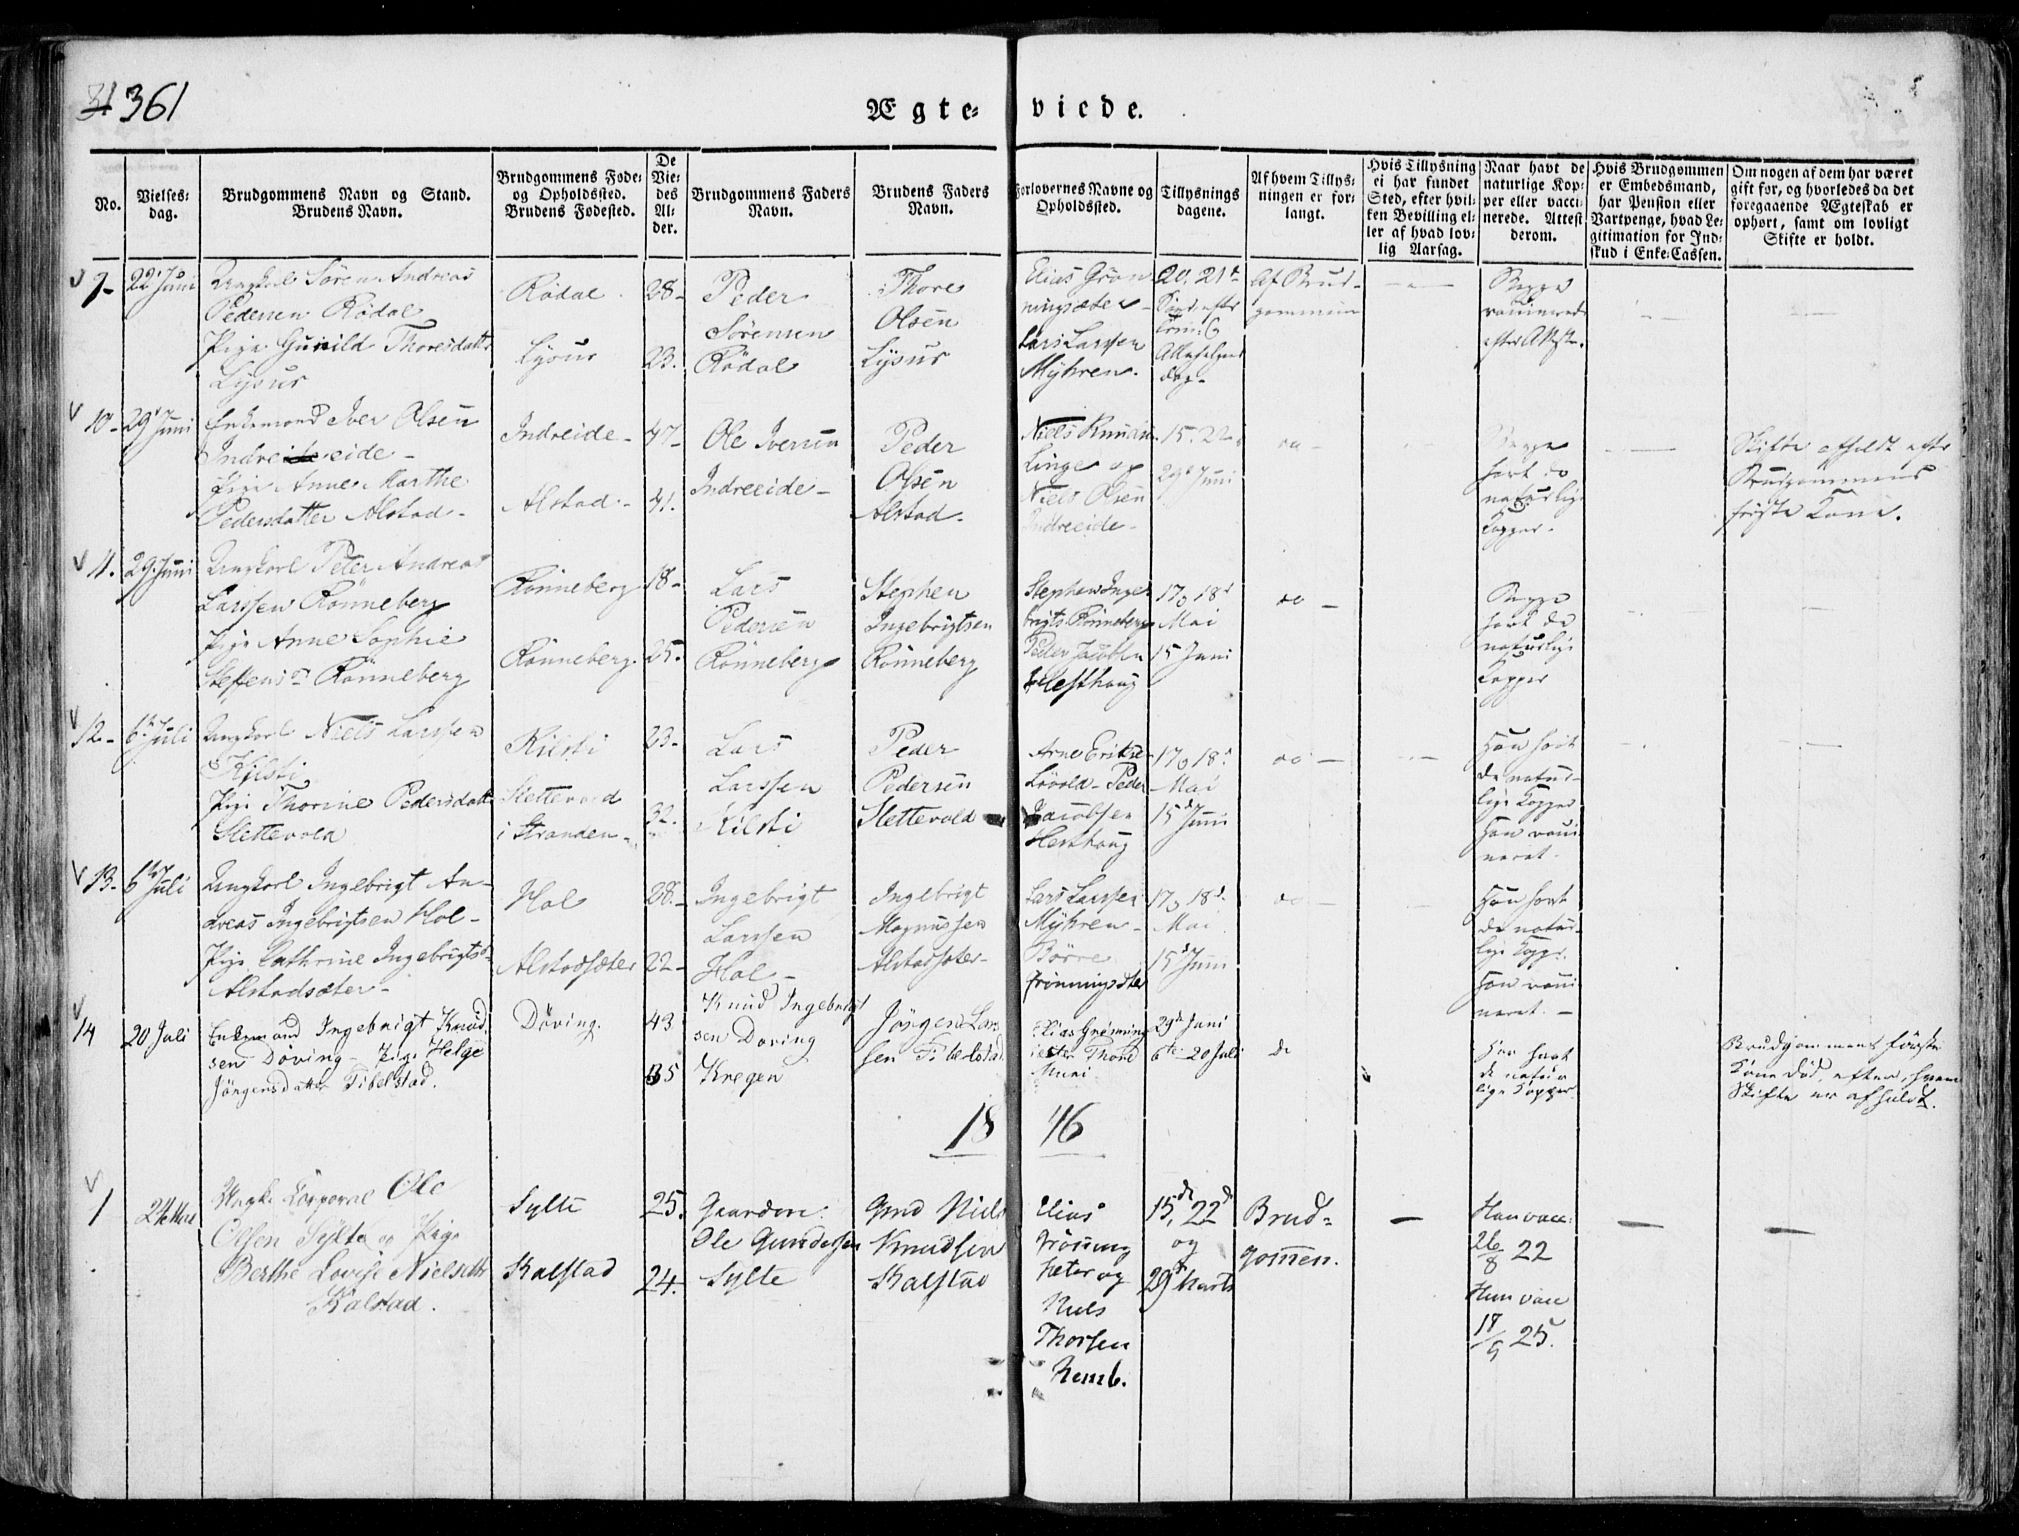 361
Ægte- viede.
No.
Vielses-
dag.
Brudgommens Navn og Stand.
Brudens Navn.
Brudgommens Føde-
og Opholdssted.
Brudens Fødested.
De
Vie-
des
Al-
der.
Brudgommens Faders
Navn.
Brudens Faders
Navn.
Forlovernes Navne og
Opholdssted.
Tillysnings
dagene.
Af hvem Tillys-
ningen er for-
langt.
Hvis Tillysning
ei har fundet
Sted, efter hvil-
ken Bevilling el-
ler af hvad lov-
lig Aarsag.
Naar havt de
naturlige Kop-
per eller vacci-
nerede. Attest
derom.
Hvis Brudgommen
er Embedsmand,
har Pension eller
Vartpenge, hvad Le-
gitimation for Ind-
skud i Enke-Cassen.
Om nogen af dem har været
gift før, og hvorledes da det
foregaaende Ægteskab er
ophørt, samt om lovligt
Skifte er holdt.
9- 22 Juni
Ungkarl Sören Andreas
Pedersen Rödal
Pige Gunild Thoresdatter
Lysur
Rödal
Lysur
28-
23.
Peder
Sörensen
Rödal
Thore
Olsen
Lysur
Elias Grön
ningsæter
Lars Larssen
Myhren.
20, 21
Af Brud-
gommen
Begge
vaccinerede
efter Attester.
10- 29 Juni
Enkemand Iver Olsen
Indreeide-
Pige Anne Marthe
Pedersdatter Alstad-
Indreide-
Alstad-
47-
41.
Ole Iversen
Indreeide-
Peder
Olsen
Alstad-
Niels Knuds.
Linge og
Niels Olsen
Indreeide-
15. 22.
29 Juni
do -
Begge
havt de
naturlige
Kopper.
Skifte afholdt efter
Brudgommens
første Kone.
11. 29. Juni
Ungkarl Peter Andreas
Larssen Rönneberg
Pige Anne Sophie
Steffensd. Rönneberg
Rönneberg
Rönneberg.
18-
25.
Lars
Pedersen
Rönneberg
Stephen
Ingebrigtsen
Rönneberg
Stephen Inge-
brigts. Rönneberg
Peder Jacobsen
Hesthaug
17, 18
Mai
15 Juni
do -
Begge
havt de
naturlige
Kopper
12- 6 Juli
Ungkarl Niels Larssen
Kilsti
Pige Thorine Pedersdatt.
Slettevold
Kilsti
Slettevold
i Stranden-
23-
32.
Lars
Larssen
Kilsti
Peder
Pedersen
Slettevold
Arne Eriks-
Lövold- Peder
Jacobsen
Hesthaug
17, 18
Mai
15 Juni
do -
Han havt
de natur-
lige Kopper
Hun vacci-
neret.
13- 6 Juli
Ungkarl Ingebrigt An-
dreas Ingebrigtsen Hol-
Pige Cathrine Ingebrigtsd.
Alstadsæter-
Hol
Alstadsæter
28.-
22-
Ingebrigt
Larssen
Hol-
Ingebrigt
Magnussen
Alstadsæter-
Lars Larssen
Myhren-
Börre
Grönningsæter
17, 18
Mai
15 Juni
do -
Han havt
de natur-
lige Kopper.
Hun vacci-
neret. -
14 20 Juli
Enkemand Ingebrigt Knud-
sen Döving- Pige Helge
Jörgensdatter Tibelstad.
Döving.
43
35
Knud Ingebrigt
sen Döving
Kregen
Jörgen Lars
sen Tibelstad
Elias Grönning
sæter Thore
Muri
29 Juni
6te 20 Juli
do
Han havt
de natur
lige Kopper.
Brudgommens förste
Kone död, efter hvem
Skifte er afholdt.
18 46
1
Ungk. Corporal Ole
Olsen Sylte og Pige
Berthe Lovise Nielsdtr
Kalstad.
Sylte
Kalstad
25.
24.
Gaardm:
Ole Gundersen
Sylte
Gmd Niels
Knudsen
Kalstad
Elias
Grönning
sæter og
Niels
Thorsen
Remb.
15de, 22de
og
29 Marts
Brud-
gommen.
Han vacc:
26/8 22
Hun vacc
18/9 25.